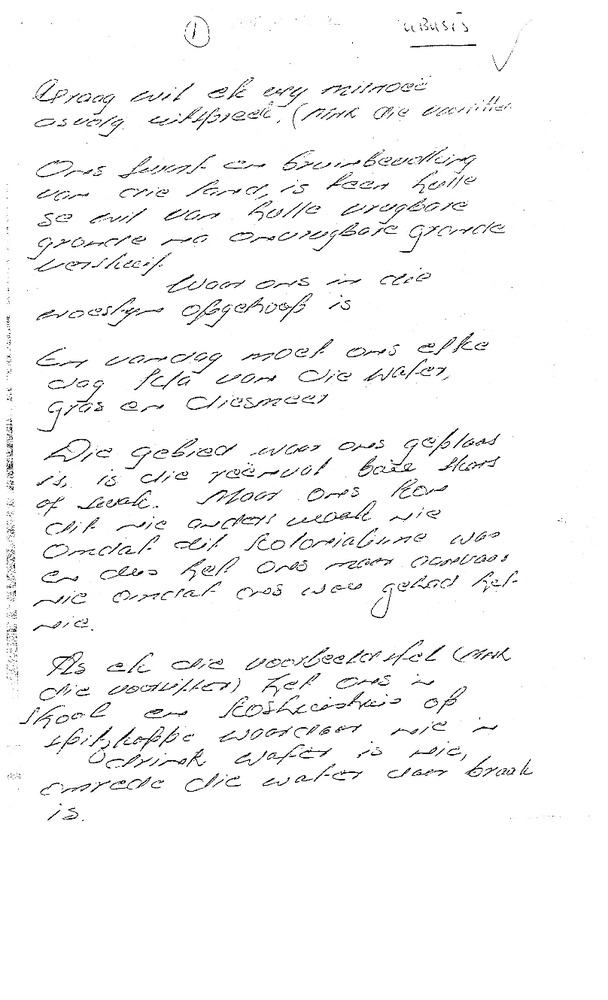 1
UBUSIS
Graag wil ek my menoeë
as volg uitspreek. (Mnr die voorsitter
Ons swart en bruinbevolking
van die land, is teen hulle
se wil van hulle vrugbare
gronde na onvrugbare gronde
verskuif.
Waar ons in die
woestyn opgehoop is
En vandag moet ons elke
dag kla van die water,
gras en diesmeer
Die gebied waar ons geplaas
is, is die reënval baie skars
of swak. Maar ons kon
dit nie anders maak nie
omdat dit kolonialisme was
en dus het ons maar aanvaar
nie omdat ons wou gehad het
nie.
As ek die voorbeeld stel (Mnr
die voorsitter) het ons 'n
skool en koshuis op
spitzkoppe waar daar nie 'n
drink water is nie,
omrede die water daar braak
is.